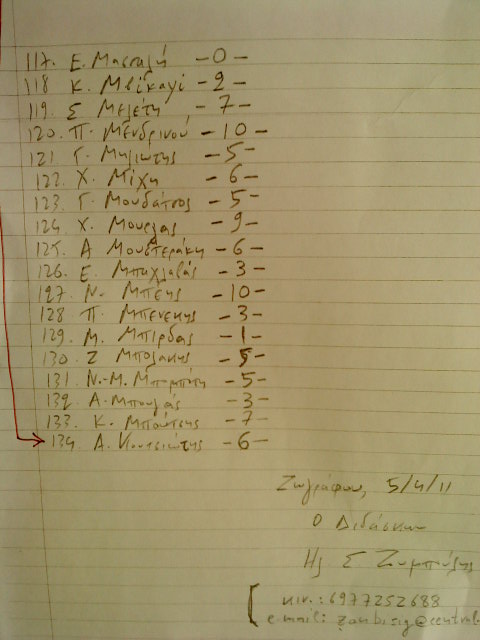 117. Ε. Μασταλή -0-
118 Κ. Μπίκαγί -2-
119. Σ Μελέτη -7-
120. Π. Μενδρινού -10-
121. Γ. Μηλιώτης -5-
122. Χ. Μίχη -6-
123. Γ. Μουδάτσος -5-
124. Χ. Μούργας -9-
125. Α Μουστεράκη -6-
126. Ε. Μπαχλαβάς -3-
127. Ν. Μπέης -10-
128 Π. Μπενέκης -3-
129. Μ. Μπίρδας -1-
130. Ζ Μπολάκης -5-
131. Ν.-Μ. -5-
132. Α. Μπουγάς -3-
133. Κ. Μπούτσης -7-
134. Α. -6-
Ζωγράφου, 5/4/11
Ο Διδάσκων
Ηs Σ Ζυμπίδης
κιν.: 6977252688
e-mail: